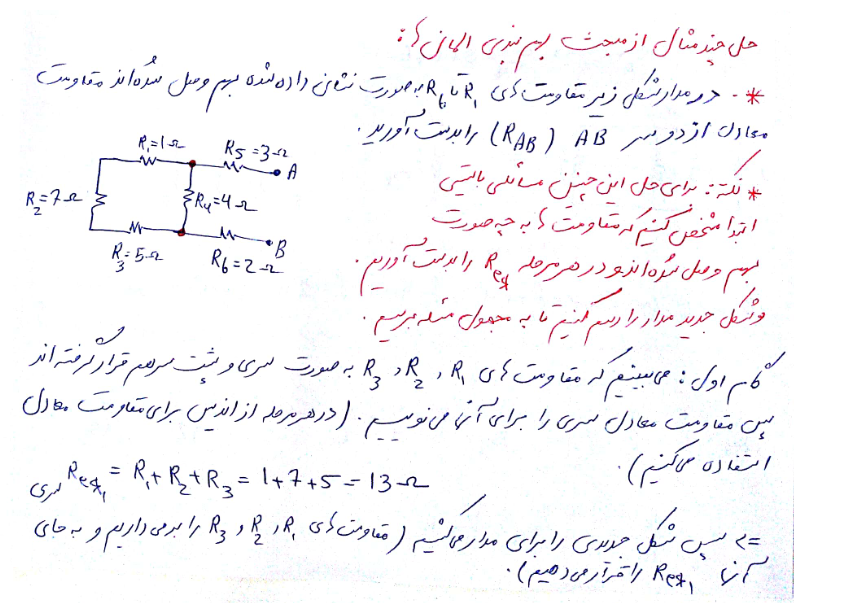 حل چند مثال از مبحث بهم بندی المان ها:
*- در مدار شکل زیر مقاومت های R₁ تا R₆ به صورت نشان داده شده بهم وصل شده اند مقاومت
معادل از دو سر AB (R_AB) را بدست آورید.
R₁=1Ω
R₅=3Ω
A
R₂=7Ω
R₄=4Ω
R₃=5Ω
R₆=2Ω
B
* نکته: برای حل این چنین مسائلی بایستی
ابتدا مشخص کنیم که مقاومت ها به چه صورت
بهم وصل شده اند و در هر مرحله Req را بدست آوریم.
و شکل جدید مدار را رسم کنیم تا به مجهول مسئله برسیم.
گام اول: می بینیم که مقاومت های R₁ و R₂ و R₃ به صورت سری و پشت سر هم قرار گرفته اند
پس مقاومت معادل سری را برای آنها می نویسیم. (در هر مرحله از اندیس برای مقاومت معادل
استفاده می کنیم).
سری Req₁ = R₁+R₂+R₃ = 1+7+5 = 13Ω
=> پس شکل جدیدی را برای مدار می کشیم (مقاومت های R₁ و R₂ و R₃ را برمی داریم و به جای
آنها Req₁ را قرار می دهیم).